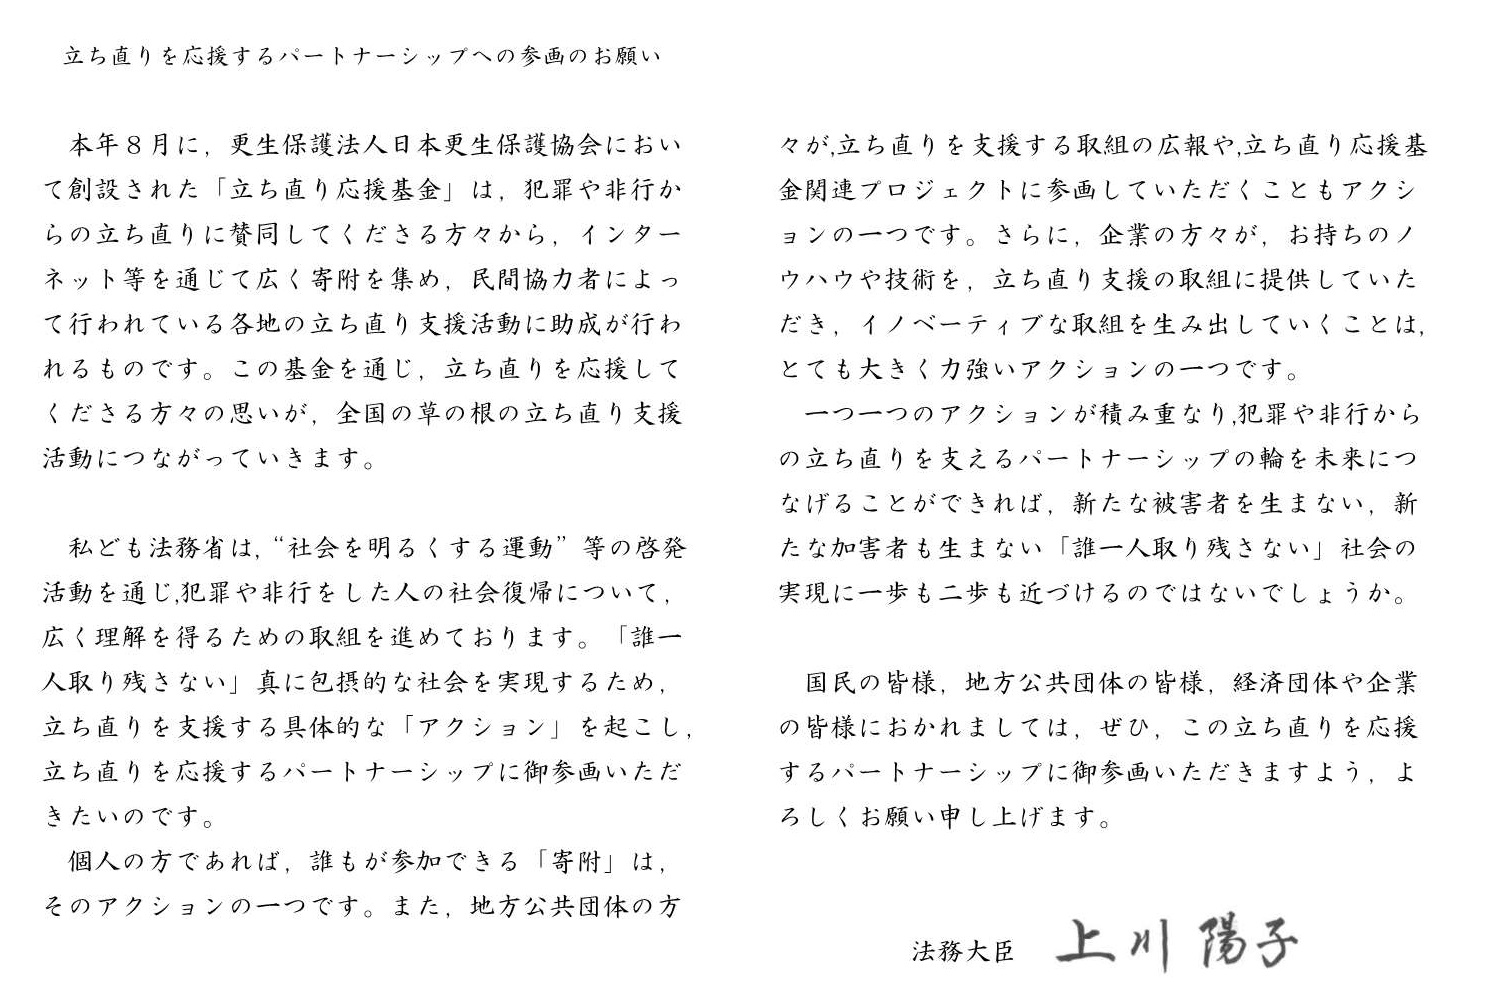 立ち直りを応援するパートナーシップへの参画のお願い
本年８月に，更生保護法人日本更生保護協会におい
て創設された「立ち直り応援基金」は，犯罪や非行か
らの立ち直りに賛同してくださる方々から，インター
ネット等を通じて広く寄附を集め，民間協力者によっ
て行われている各地の立ち直り支援活動に助成が行わ
れるものです。この基金を通じ，立ち直りを応援して
くださる方々の思いが，全国の草の根の立ち直り支援
活動につながっていきます。
私ども法務省は，“社会を明るくする運動”等の啓発
活動を通じ,犯罪や非行をした人の社会復帰について，
広く理解を得るための取組を進めております。「誰一
人取り残さない」真に包摂的な社会を実現するため，
立ち直りを支援する具体的な「アクション」を起こし，
立ち直りを応援するパートナーシップに御参画いただ
きたいのです。
個人の方であれば，誰もが参加できる「寄附」は，
そのアクションの一つです。また，地方公共団体の方
々が,立ち直りを支援する取組の広報や,立ち直り応援基
金関連プロジェクトに参画していただくこともアクシ
ョンの一つです。さらに，企業の方々が，お持ちのノ
ウハウや技術を，立ち直り支援の取組に提供していた
だき，イノベーティブな取組を生み出していくことは，
とても大きく力強いアクションの一つです。
一つ一つのアクションが積み重なり,犯罪や非行から
の立ち直りを支えるパートナーシップの輪を未来につ
なげることができれば，新たな被害者を生まない，新
たな加害者も生まない「誰一人取り残さない」社会の
実現に一歩も二歩も近づけるのではないでしょうか。
国民の皆様，地方公共団体の皆様，経済団体や企業
の皆様におかれましては，ぜひ，この立ち直りを応援
するパートナーシップに御参画いただきますよう，よ
ろしくお願い申し上げます。
法務大臣　上川　陽子